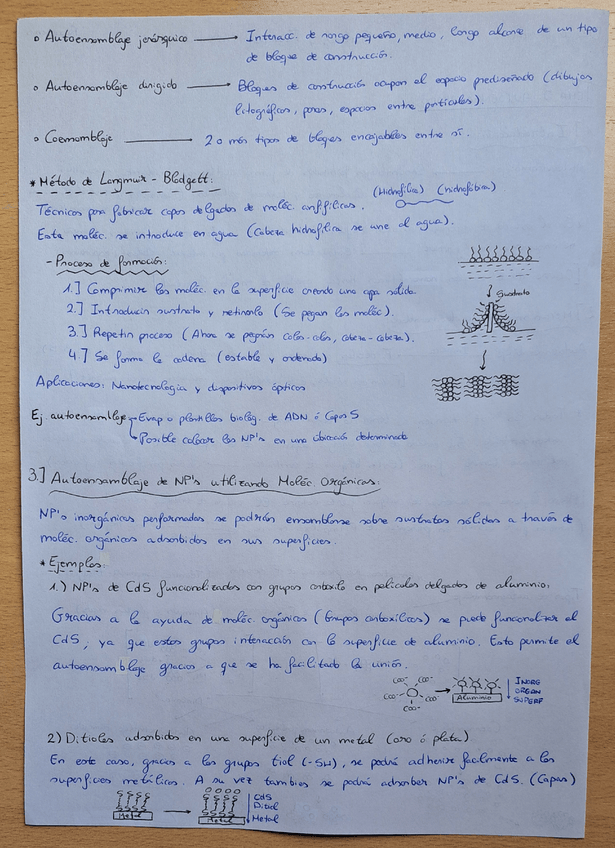 o Autoensamblaje jerárquico → Interacc. de rango pequeño, medio, largo alcance de un tipo
de bloque de construcción.
o Autoensamblaje dirigido → Bloques de construcción ocupan el espacio prediseñado (dibujos
litográficos, poros, espacios entre partículas).
o Coensamblaje → 2 o más tipos de bloques encajables entre sí.
* Método de Langmuir - Blodgett:
(Hidrofílica) (hidrofóbica)
Técnicas para fabricar capas delgadas de moléc. anfifílicas.
Esta moléc. se introduce en agua (Cabeza hidrofílica se une al agua).
- Proceso de formación:
1.] Comprimir las moléc. en la superficie creando una capa sólida.
2.] Introducir sustrato y retirarlo (Se pegan las moléc).
Sustrato
3.] Repetir proceso (Ahora se pegarán cola-cola, cabeza-cabeza).
4.] Se forma la cadena (estable y ordenada)
Aplicaciones: Nanotecnología y dispositivos ópticos.
Ej. autoensamblaje → Evap o plantillas biológ. de ADN ó Capas S
→ Posible colocar las NP's en una ubicación determinada
3.] Autoensamblaje de NP's utilizando Moléc. Orgánicas:
NP's inorgánicas performadas se podrían ensamblarse sobre sustratos sólidos a través de
moléc. orgánicas adsorbidas en sus superficies.
* Ejemplos:
1.) NP's de CdS funcionalizadas con grupos carboxilo en películas delgadas de aluminio.
Gracias a la ayuda de moléc. orgánicas (Grupos carboxílicos) se puede funcionalizar el
CdS, ya que estos grupos interacción con la superficie de aluminio. Esto permite el
autoensamblaje gracias a que se ha facilitado la unión.
COO⁻ COO⁻ COO⁻ COO⁻ COO⁻ → Aluminio
INORG
ORGAN
SUPERF
2) Ditioles adsorbidos en una superficie de un metal (oro ó plata).
En este caso, gracias a los grupos tiol (-SH), se podrá adherir facilmente a las
superficies metálicas. A su vez tambies se podrá adsorber NP's de CdS. (Capas)
Metal → Metal
CdS
Ditiol
Metal